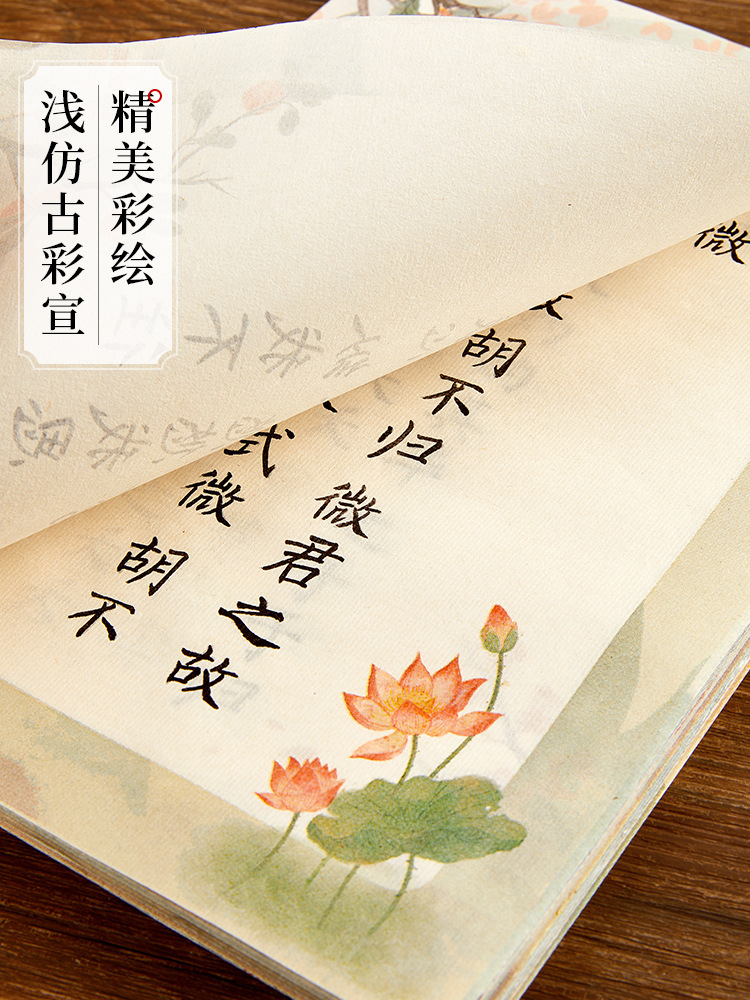 精美彩绘
浅仿古彩宣
微
胡不归微君之故
式微胡不